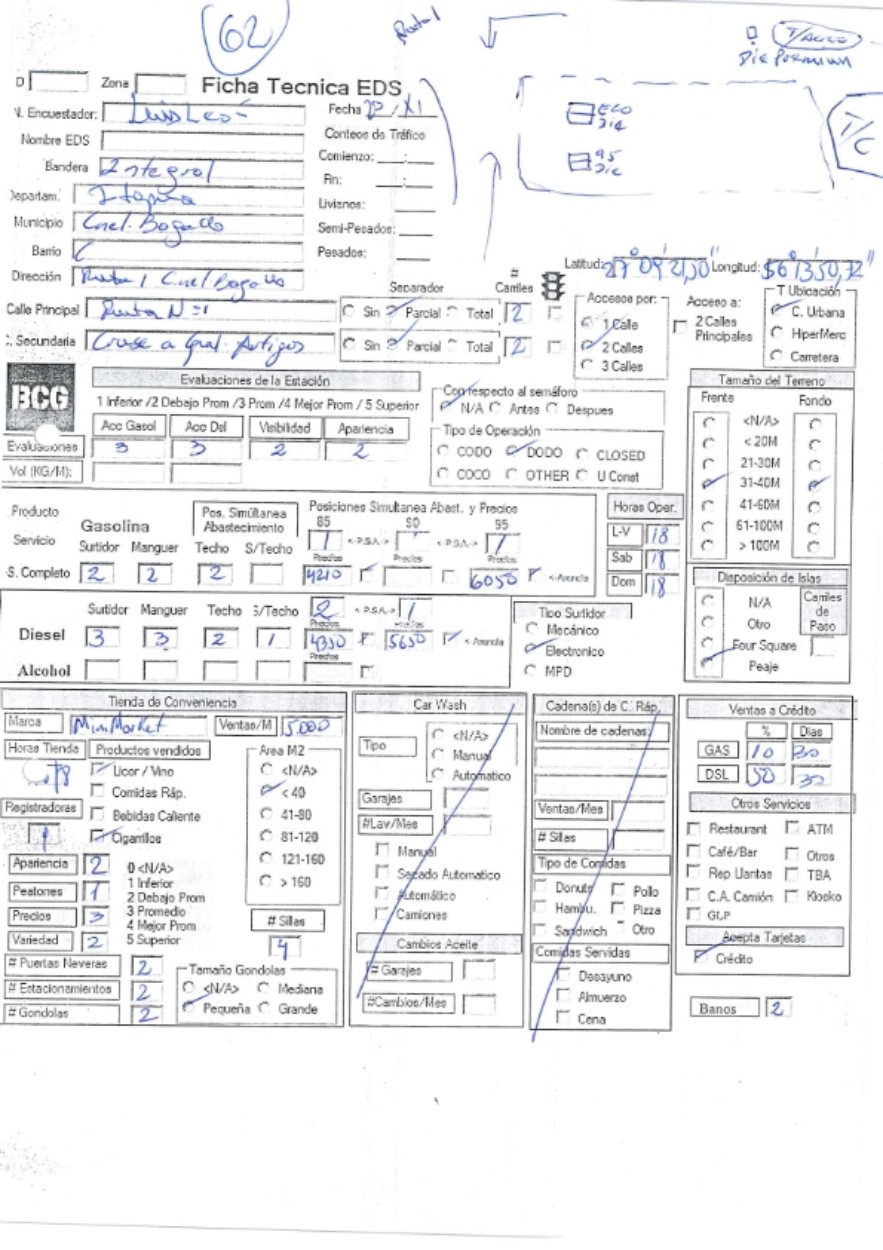 62
Ruta 1
T/Aceite
Die Premium
D Zona Ficha Tecnica EDS
N. Encuestador: Luis León Fecha / XI
Nombre EDS Conteos de Tráfico
Bandera Integral Comienzo: __:__
Departam. Itapua Fin: __:__
Livianos:
Municipio Cnel. Bogado Semi-Pesados:
Barrio Pesados:
ECO
Die
95
Die
T/C
Latitud: 27°09'21,50" Longitud: 56°13'50,72"
Dirección Ruta 1 Cnel Bogado
Separador # Carriles
Calle Principal Ruta N=1 Sin Parcial Total 2
C. Secundaria Cruse a Gral. Artigas Sin Parcial Total 2
Accesos por:
1 Calle
2 Calles
3 Calles
Acceso a:
2 Calles Principales
T Ubicación
C. Urbana
HiperMerc
Carretera
BCG
Evaluaciones de la Estación
1 Inferior /2 Debajo Prom /3 Prom /4 Mejor Prom / 5 Superior
Acc Gasol Acc Del Visibilidad Apariencia
Evaluaciones 3 3 2 2
Vol (KG/M):
Con respecto al semáforo
N/A Antes Despues
Tipo de Operación
CODO DODO CLOSED
COCO OTHER U Const
Tamaño del Terreno
Frente Fondo
<N/A>
< 20M
21-30M
31-40M
41-60M
61-100M
> 100M
Producto
Servicio
Gasolina
Pos. Simúltanea Abastecimiento
Posiciones Simultanea Abast. y Precios
85 90 95
Surtidor Manguer Techo S/Techo 1 <-P.S.A.-> <-P.S.A.-> 1
Precios Precios Precios
S. Completo 2 2 2 4210 6050 <-Avencia
Horas Oper.
L-V 18
Sab 18
Dom 18
Disposición de Islas
N/A
Otro
Four Square
Peaje
Carriles de Paso
Surtidor Manguer Techo S/Techo 2 <-P.S.A.-> 1
Precios Precios
Diesel 3 3 2 1 4350 5650 <-Avencia
Precios
Alcohol
Tipo Surtidor
Mecánico
Electronico
MPD
Tienda de Conveniencia
Marca MiniMarket Ventas/M 5.000
Horas Tienda Productos vendidos
18
Licor / Vino
Comidas Ráp.
Bebidas Caliente
Cigarrillos
Registradoras
1
Area M2
<N/A>
< 40
41-80
81-120
121-160
> 160
Apariencia 2
Peatones 1
Precios 3
Variedad 2
0 <N/A>
1 Inferior
2 Debajo Prom
3 Promedio
4 Mejor Prom
5 Superior
# Sillas
4
# Puertas Neveras 2
# Estacionamientos 2
# Gondolas 2
Tamaño Gondolas
<N/A> Mediana
Pequeña Grande
Car Wash
Tipo
<N/A>
Manual
Automatico
Garajes
#Lav/Mes
Manual
Secado Automatico
Automático
Camiones
Cambios Aceite
# Garajes
#Cambios/Mes
Cadena(s) de C. Ráp.
Nombre de cadenas:
Ventas/Mes
# Sillas
Tipo de Comidas
Donuts Pollo
Hambu. Pizza
Sandwich Otro
Comidas Servidas
Desayuno
Almuerzo
Cena
Ventas a Crédito
% Dias
GAS 10 30
DSL 50 30
Otros Servicios
Restaurant ATM
Café/Bar Otros
Rep Llantas TBA
C.A. Camión Kiosko
GLP
Acepta Tarjetas
Crédito
Banos 2